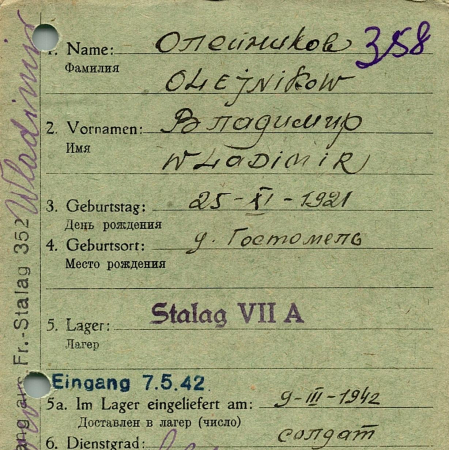 1. Name: Олейников 358
Фамилия
OLEJNIKOW
2. Vornamen: Владимир
Имя
WLADIMIR
3. Geburtstag: 25-XI-1921
День рождения
4. Geburtsort: д. Гостомель
Место рождения
5. Lager: Stalag VII A
Лагер
Eingang 7.5.42.
5a. Im Lager eingeliefert am: 9-III-1942
Доставлен в лагер (число)
6. Dienstgrad: солдат
Fr.-Stalag 352 Wladimir